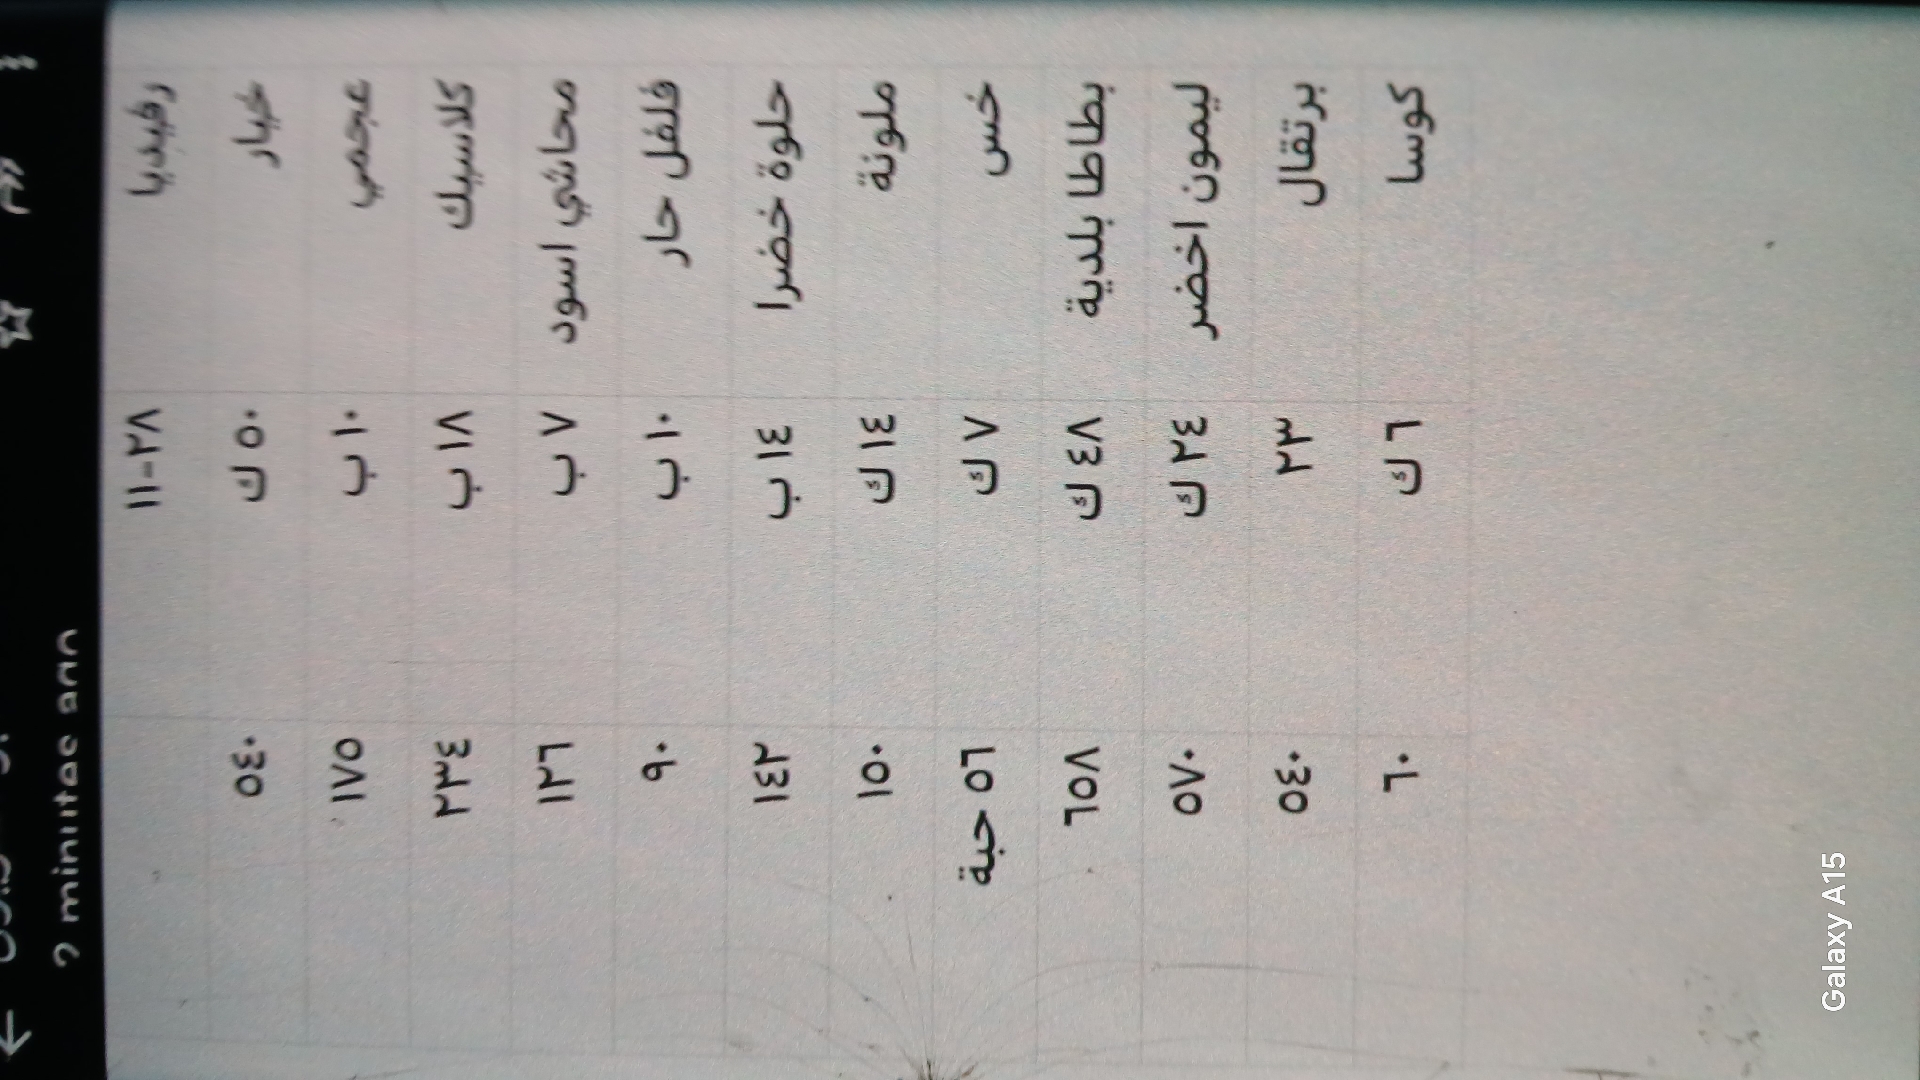 2 minutes ago
رفيديا ٢٨-١١
خيار ٥٠ ك ٥٤٠
عجمي ١٠ ب ١٧٥
كلاسيك ١٨ ب ٢٣٤
محاشي اسود ٧ ب ١٢٦
فلفل حار ١٠ ب ٩٠
حلوة خضرا ١٤ ب ١٤٢
ملونة ١٤ ك ١٥٠
خس ٧ ك ٥٦ حبة
بطاطا بلدية ٤٨ ك ٧٥٦
ليمون اخضر ٢٤ ك ٥٧٠
برتقال ٢٣ ٥٤٠
كوسا ٦ ك ٦٠
Galaxy A15